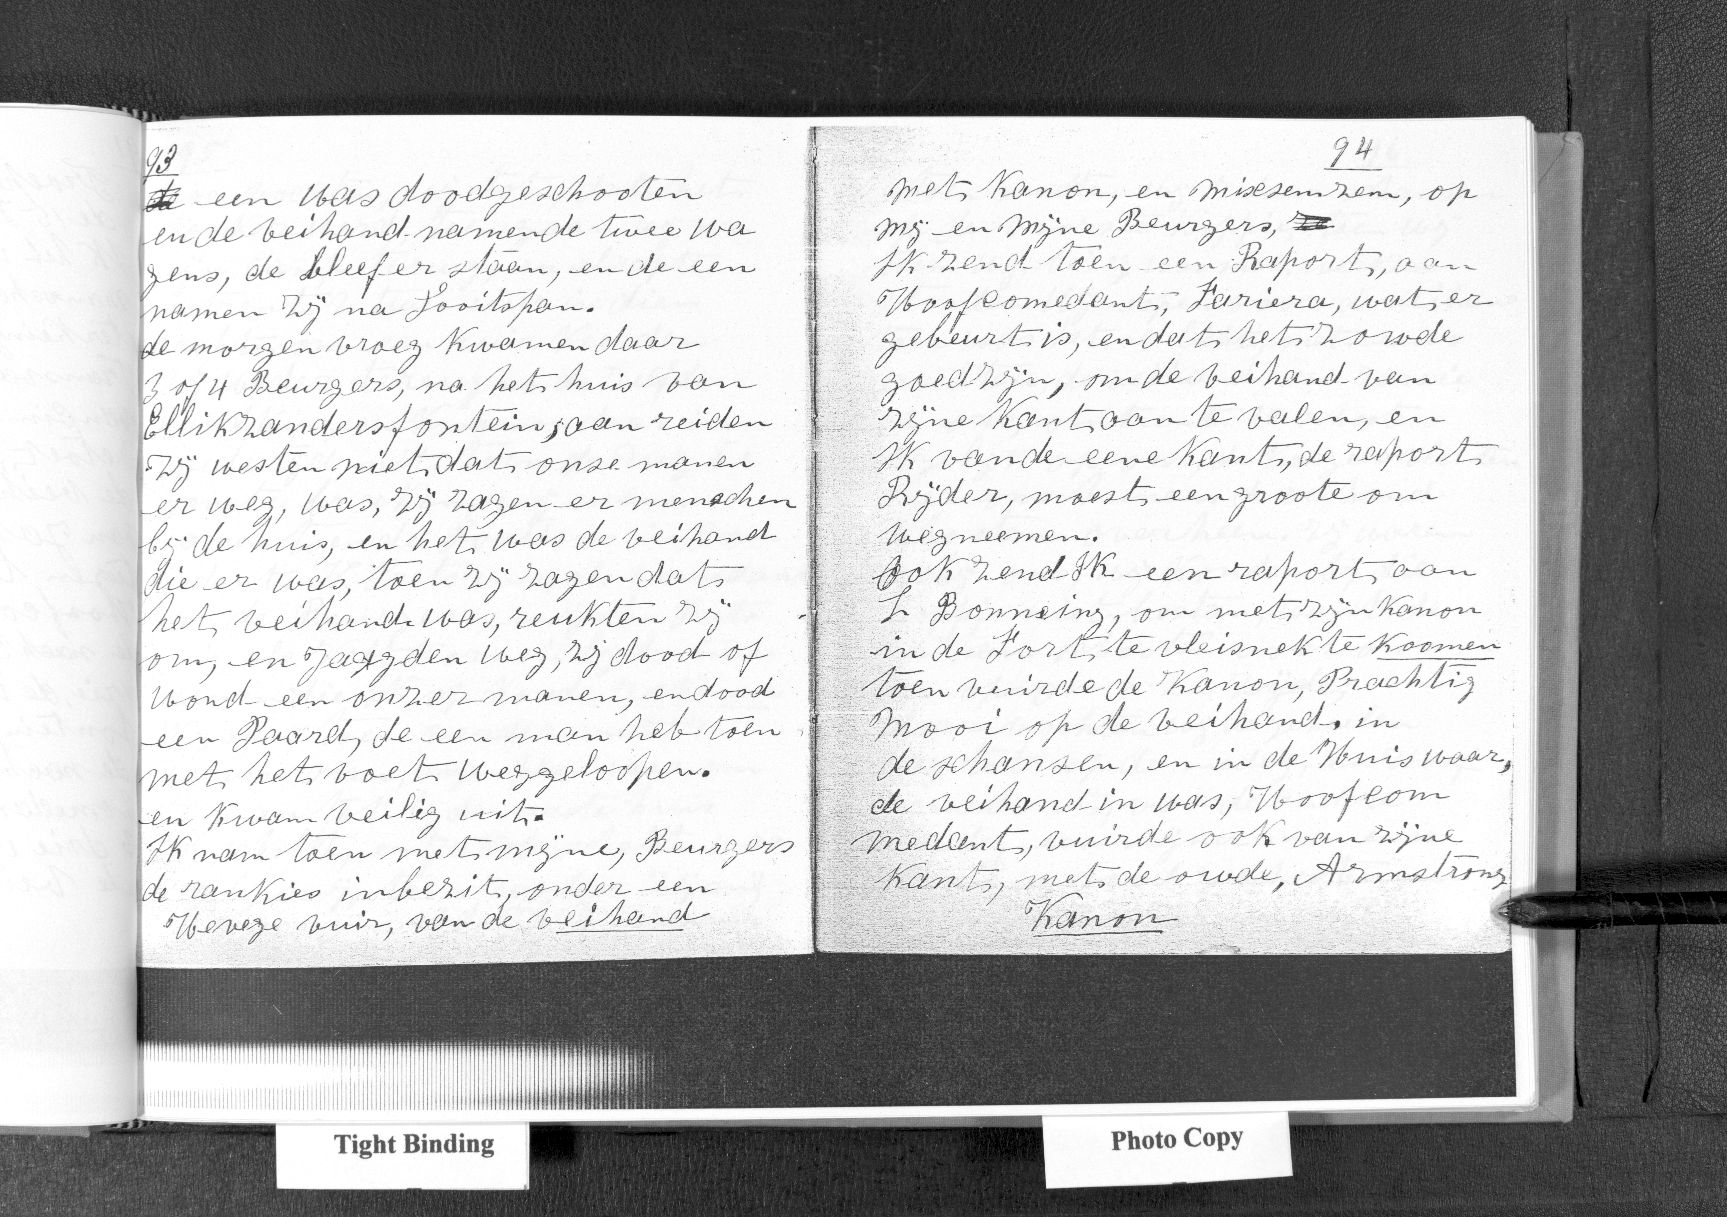 93
een was doodgeschooten
en de veihand namen de twee wa
gens, de bleef er staan, en de een
namen zÿ na Looitspan.
de morgen vroeg kwamen daar
3 of 4 Beurgers, na het huis van
Ellikzandersfontein, aan reiden
zÿ westen niet dat onse manen
er weg, was, zÿ zagen er menschen
bÿ de huis, en het was de veihand
die er was, toen zÿ zagen dat
het veihand was, reukten zÿ
om, en jaagden weg, zÿ dood of
wond een onzer manen, en dood
een Paard, de een man heb toen
met het voet weggeloopen.
en kwam veilig uit.
Ik nam toen met mÿne, Beurgers
de rankies in bezit, onder een
Hevege vuir, van de veihand
94
met Kanon, en mixsemzem, op
mÿ en mÿne Beurgers,
Ik zend toen een Raport, aan
Hoofcomedant, Fariera, wat er
gebeurt is, en dat het zowde
goed zÿn, om de veihand van
zÿne kant aan te valen, en
Ik van de eene kant, de raport
Rÿder, moest een groote om
weg neemen.
Ook zend Ik een raport aan
L Bonneing, om met zÿn Kanon
in de Fort te vleisnek te koomen
toen vuirde de Kanon, Prachtig
Mooi op de veihand. in
de schansen, en in de Huis waar,
de veihand in was, Hoofcom
medant, vuirde ook van zÿne
kant, met de owde, Armstrong
Kanon
Tight Binding
Photo Copy